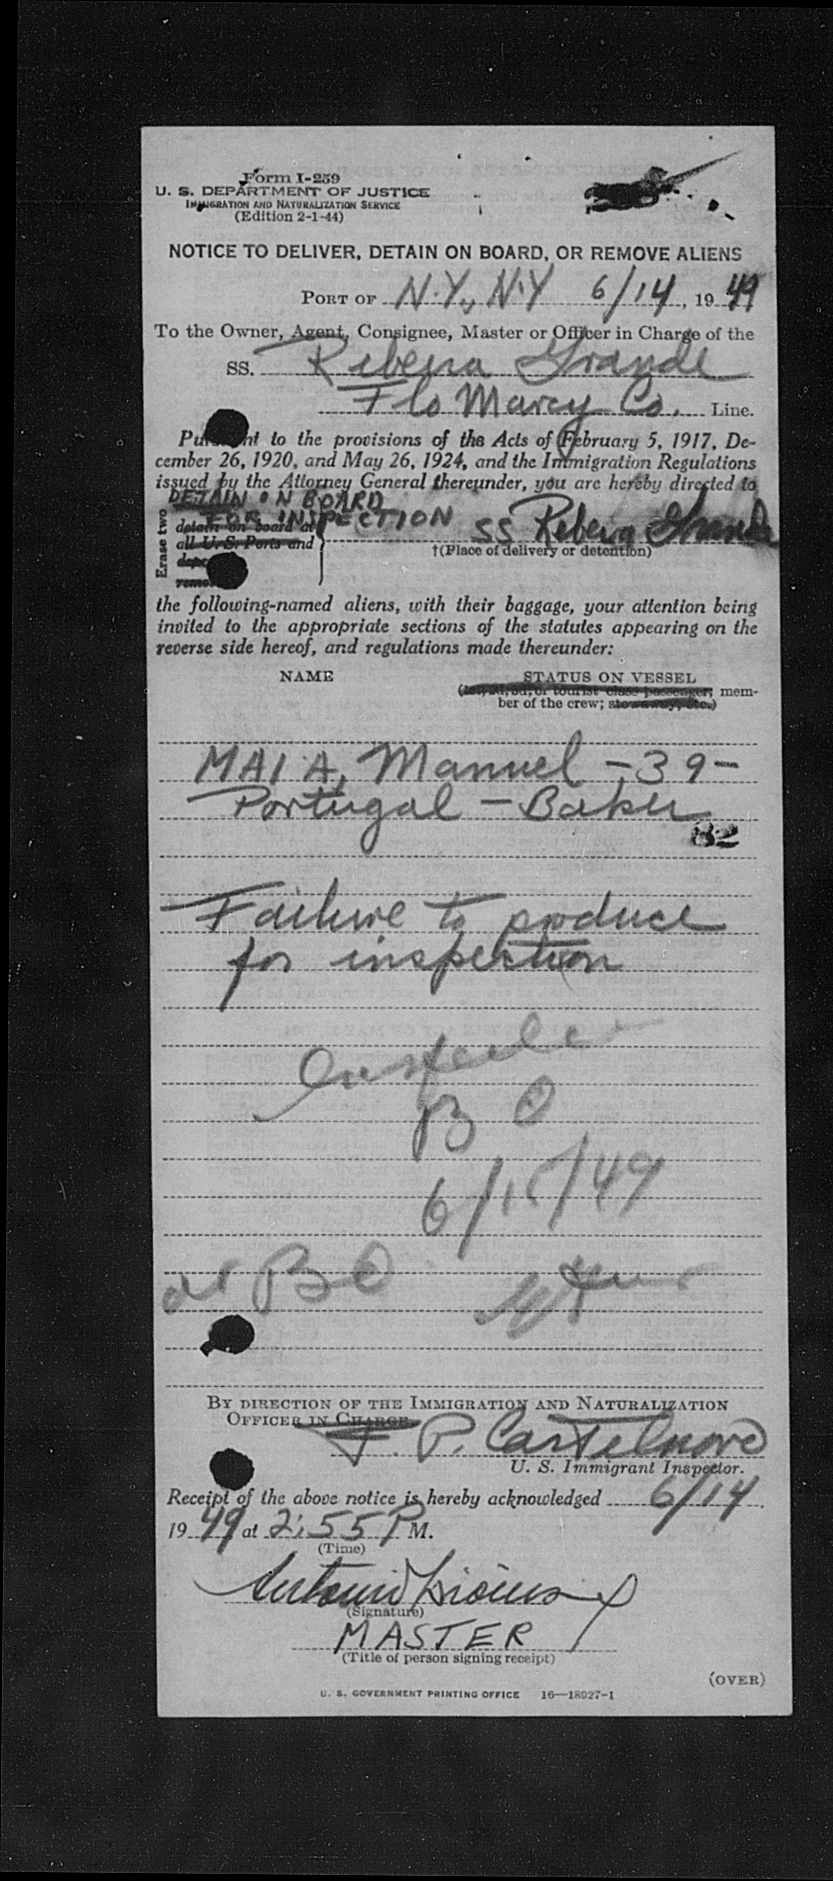 Form I-259
U. S. DEPARTMENT OF JUSTICE
IMMIGRATION AND NATURALIZATION SERVICE
(Edition 2-1-44)
NOTICE TO DELIVER, DETAIN ON BOARD, OR REMOVE ALIENS
PORT OF N.Y., N.Y 6/14, 19 49
To the Owner, Agent, Consignee, Master or Officer in Charge of the
SS. Ribeira Grande
Flo Marcy Co. Line.
Pursuant to the provisions of the Acts of February 5, 1917, De-
cember 26, 1920, and May 26, 1924, and the Immigration Regulations
issued by the Attorney General thereunder, you are hereby directed to
DETAIN ON BOARD
FOR INSPECTION SS Ribeira Grande
Erase two
detain on board at
all U.S. Ports and
†(Place of delivery or detention)
the following-named aliens, with their baggage, your attention being
invited to the appropriate sections of the statutes appearing on the
reverse side hereof, and regulations made thereunder:
NAME STATUS ON VESSEL
or tourist class passenger; mem-
ber of the crew; stowaway, etc.)
MAIA, Manuel - 39 -
Portugal - Baker
82
Failure to produce
for inspection
B O
6/15/49
at B O
BY DIRECTION OF THE IMMIGRATION AND NATURALIZATION
OFFICER IN CHARGE
P.
U. S. Immigrant Inspector.
Receipt of the above notice is hereby acknowledged 6/14,
19 49 at 2:55 P M.
(Time)
(Signature)
MASTER
(Title of person signing receipt)
(OVER)
U. S. GOVERNMENT PRINTING OFFICE 16—18027-1